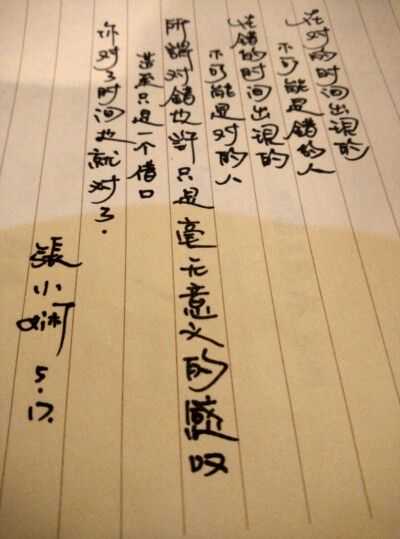 在对的时间出現的
不可能是錯的人
在錯的时间出現的
不可能是对的人
所謂对錯也許只是毫无意义的感叹
甚至只是一个借口
你对了时间也就对了.
張小
5.17.